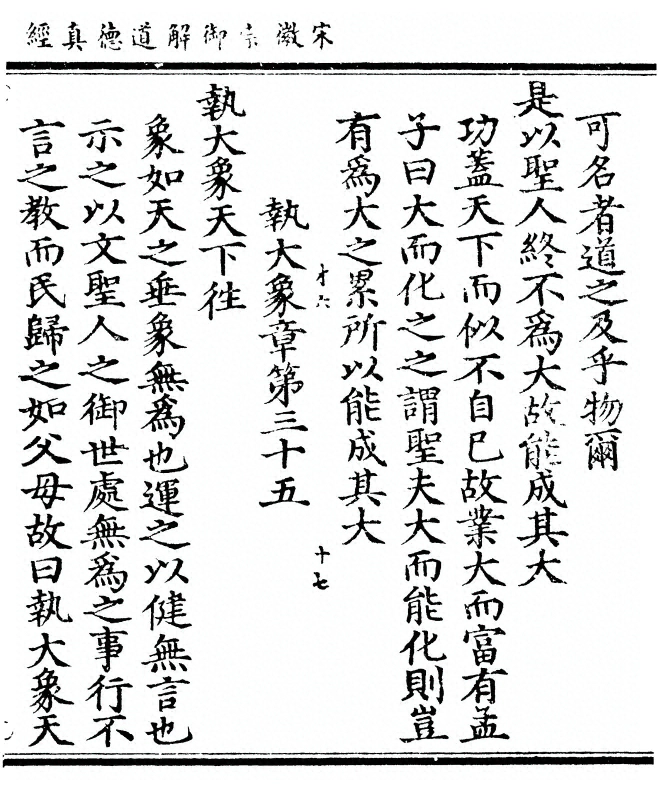 宋徽宗御解道德真經
可名者道之及乎物爾
是以聖人終不爲大故能成其大
功蓋天下而似不自已故業大而富有孟
子曰大而化之之謂聖夫大而能化則豈
有爲大之累所以能成其大
才六
十七
執大象章第三十五
執大象天下往
象如天之垂象無爲也運之以健無言也
示之以文聖人之御世處無爲之事行不
言之教而民歸之如父母故曰執大象天